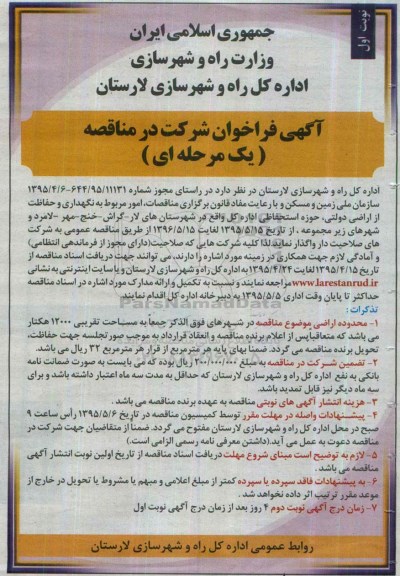 نوبت اول
جمهوری اسلامی ایران
وزارت راه و شهرسازی
اداره کل راه و شهرسازی لارستان
آگهی فراخوان شرکت در مناقصه
( یک مرحله ای )
اداره کل راه و شهرسازی لارستان در نظر دارد در راستای مجوز شماره ۶۴۴/۹۵/۱۱۱۳۱-۱۳۹۵/۴/۶
سازمان ملی زمین و مسکن و با رعایت مفاد قانون برگزاری مناقصات، امور مربوط به نگهداری و حفاظت
از اراضی دولتی، حوزه استحفاظی اداره کل واقع در شهرستان های لار-گراش-خنج-مهر -لامرد و
شهرهای زیر مجموعه ، از تاریخ ۱۳۹۵/۵/۱۵ لغایت ۱۳۹۶/۵/۱۵ از طریق مناقصه عمومی به شرکت
های صلاحیت دار واگذار نماید.لذا کلیه شرکت هایی که صلاحیت(دارای مجوز از فرماندهی انتظامی)
و آمادگی لازم جهت همکاری در زمینه مورد اشاره را دارند، می توانند جهت دریافت اسناد مناقصه از
تاریخ ۱۳۹۵/۴/۱۵ لغایت ۱۳۹۵/۴/۲۴ به اداره کل راه و شهرسازی لارستان و یا سایت اینترنتی به نشانی
www.larestanrud.ir مراجعه نمایند و نسبت به تکمیل و ارائه مدارک مورد اشاره در اسناد مناقصه
حداکثر تا پایان وقت اداری ۱۳۹۵/۵/۵ به دبیرخانه اداره کل اقدام نمایند.
ParsNamadData
تذکرات :
۱- محدوده اراضی موضوع مناقصه در شهرهای فوق الذکر جمعاً به مساحت تقریبی ۱۲۰۰۰ هکتار
می باشد که متعاقباپس از اعلام برنده مناقصه و انعقاد قرارداد به موجب صورتجلسه جهت حفاظت،
تحویل برنده مناقصه می گردد. ضمنا بهای پایه هر مترمربع از قرار هر مترمربع ۳۲ ریال می باشد.
۲- تضمین شرکت در مناقصه به مبلغ ۲۰۰/۰۰۰/۰۰۰ ریال بوده که می بایست به صورت ضمانت نامه
بانکی به نفع اداره کل راه و شهرسازی لارستان که حداقل به مدت سه ماه اعتبار داشته باشد و برای
سه ماه دیگر نیز قابل تمدید باشد.
۳- هزینه انتشار آگهی های نوبتی مناقصه به عهده برنده مناقصه می باشد .
۴- پیشنهادات واصله در مهلت مقرر توسط کمیسیون مناقصه در تاریخ ۱۳۹۵/۵/۶ رأس ساعت ۹
صبح در محل اداره کل راه و شهرسازی لارستان مفتوح می گردد. ضمناً از متقاضیان جهت شرکت در
مناقصه دعوت به عمل می آید.(داشتن معرفی نامه رسمی الزامی است.)
۵- لازم به توضیح است مبنای شروع مهلت دریافت اسناد مناقصه از تاریخ اولین نوبت انتشار آگهی
مناقصه می باشد .
۶- به پیشنهادات فاقد سپرده یا سپرده کمتر از مبلغ اعلامی و مبهم یا مشروط یا تحویل در خارج از
موعد مقرر ترتیب اثر داده نخواهد شد .
۷- زمان درج آگهی نوبت دوم ۴ روز بعد از زمان درج آگهی نوبت اول
روابط عمومی اداره کل راه و شهرسازی لارستان